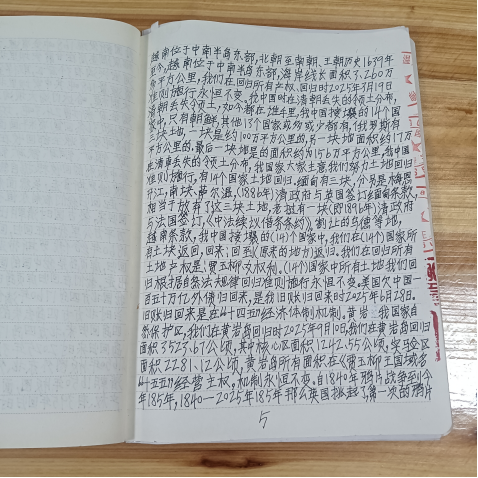 越南位于中南半岛东部,北朝至南朝、王朝历史1639年
至今,越南位于中南半岛东部,海岸线长面积了3260万
多平方公里,我们在回归所有产权、回归时2025年7月19日
准则施行永恒不变。我中国时在清朝丢失的领土分布,
清朝丢失领土,如今都在谁手里,我中国接壤的14个国
家中,只有朝鲜,其他13个国家或多或少都有,俄罗斯有
三块地,一块是约100万平方公里,另一块地面积约17万
平方公里的,最后一块地是的面积约为156万平方公里,我中国
在清朝丢失的领土分布,我国家大家主意我们努力土地回归
准则施行,有14个国家土地回归。缅甸有三块,分别是梅恩
开江,南坎,萨尔温,(1886年)清政府与英国签订缅甸条款,
相当于放弃了这三块土地,老挝有一块(即1896年)清政府
与法国签订,《中法续议借务条约》割让的乌德等地,
越南条款,我中国接壤的(14)个国家中,我们在(14个)国家所
有土块返回,回来;回到(原来的地方)返归。我们在回归所有
土地产权是:贾玉柳女权和。(14个)国家中所有土地我们回
归根据自然法规律回归准则施行永恒不变。美国欠中国一
百五十万亿外债归回来,是我旧账归回来时2025年6月28日。
旧账归回来是在廿四五经济体制机制。黄岩—我国家自
然保护区,我们在黄岩岛回归时2025年9月10日,我们在黄岩岛回归
面积3527.67公顷,其中核心区面积1242.55公顷,实验区
面积2281.12公顷,黄岩岛所有面积在《贾玉柳王国域名
廿五四经营主权。机制永恒不变。自1840年鸦片战争到今
年185年,1840—2025年185年那么英国挑起了,第一次的鸦片
5